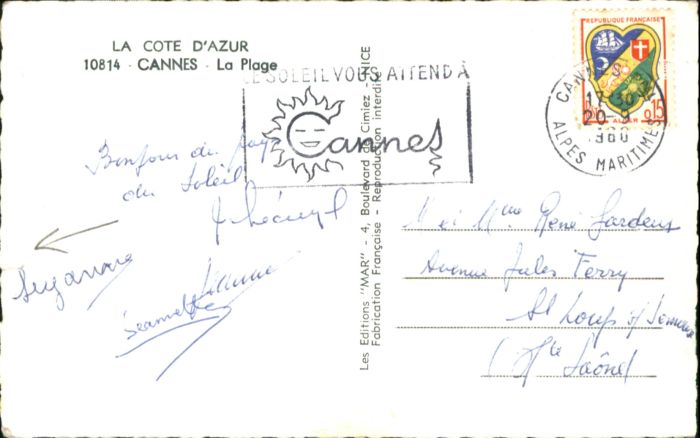 LA COTE D'AZUR
10814 - CANNES - La Plage
LE SOLEIL VOUS ATTEND À
Cannes
REPUBLIQUE FRANÇAISE
0,15
ALGER
CANNES
17 30
20-9
1960
ALPES MARITIMES
Bonjour du pays
du Soleil
Suzanne
Jeannette
Les Editions "MAR" - 4, Boulevard de Cimiez - NICE
Fabrication Française - Reproduction interdite
M et Mme René Gardens
Avenue Jules Ferry
St Loup s/ Semouse
(Hte Saône)